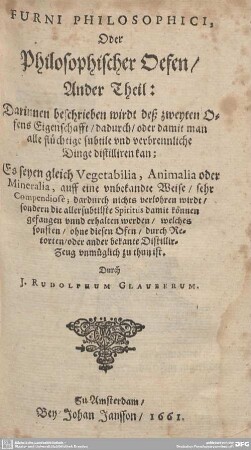 FURNI PHILOSOPHICI,
Oder
Philosophischer Oefen/
Ander Theil:
Darinnen beschrieben wirdt deß zweyten O-
fens Eigenschafft / dadurch / oder damit man
alle flüchtige subtile vnd verbrennliche
Dinge distilliren kan:
Es seyen gleich Vegetabilia, Animalia oder
Mineralia, auff eine vnbekandte Weise / sehr
Compendiosè; dardurch nichts verlohren wirdt /
sondern die allersubtilste Spiritus damit können
gefangen vnnd erhalten werden / welches
sonsten / ohne diesen Ofen / durch Re-
torten / oder ander bekante Distillir-
Zeug vnmüglich zu thun ist.
Durch
J. RUDOLPHUM GLAUBERUM.
Zu Amsterdam /
Bey Johan Jansson / 1661.